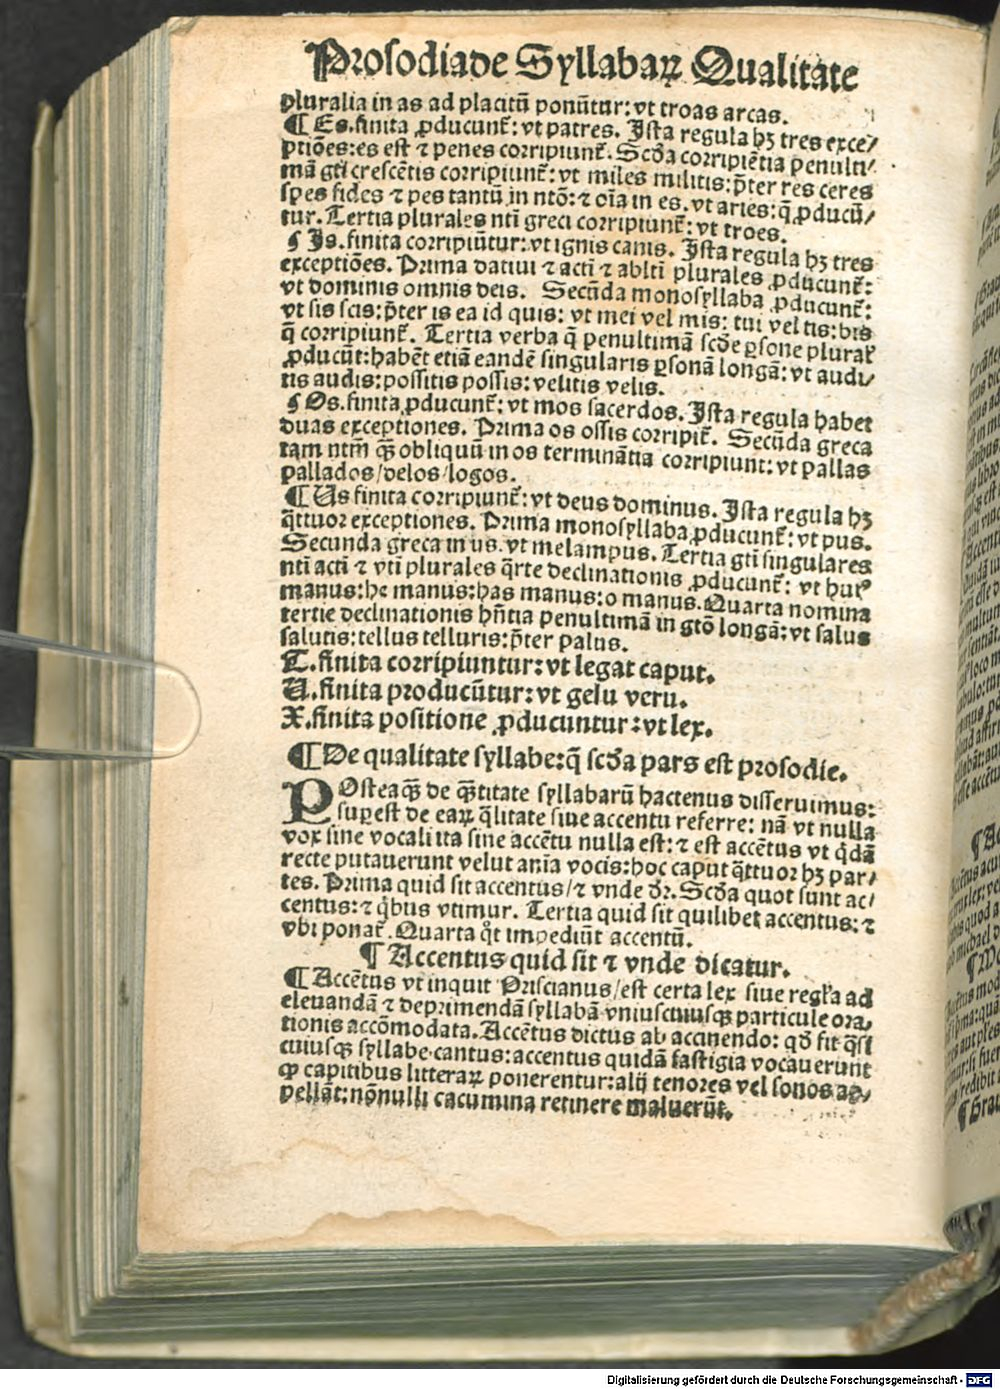 Prosodia de Syllabaꝝ Qualitate
pluralia in as ad placitū ponūtur: vt troas arcas.
¶ Es. finita ꝓducunt̄: vt patres. Ista regula hꝫ tres exce⸗
ptiōes: es est ⁊ penes corripiunt̄. Scd̄a corripiētia penulti⸗
mā gti crescētis corripiunt̄: vt miles militis: p̄ter res ceres
spes fides ⁊ pes tantū in ntō: ⁊ oīa in es. vt aries: q̄ ꝓducū⸗
tur. Tertia plurales nti greci corripiunt̄: vt troes.
¶ Is. finita corripiūtur: vt ignis canis. Ista regula hꝫ tres
exceptiōes. Prima datiui ⁊ acti ⁊ ablti plurales ꝓducunt̄:
vt dominis omnis deis. Secūda monosyllaba ꝓducunt̄:
vt sis scis: p̄ter is ea id quis: vt mei vel mis: tui vel tis: bis
q̄ corripiunt̄. Tertia verba q̄ penultimā scd̄e ꝑsone plural̄
ꝓducūt: habēt etiā eandē singularis ꝑsonā longā: vt audi⸗
tis audis: possitis possis: velitis velis.
¶ Os. finita ꝓducunt̄: vt mos sacerdos. Ista regula habet
duas exceptiones. Prima os ossis corripit̄. Secūda greca
tam ntm̄ qꝫ̄ obliquū in os terminātia corripiunt: vt pallas
pallados/delos/logos.
¶ Us finita corripiunt̄: vt deus dominus. Ista regula hꝫ
q̄ttuor exceptiones. Prima monosyllaba ꝓducunt̄: vt pus.
Secunda greca in us. vt melampus. Tertia gti singulares
nti acti ⁊ vti plurales q̄rte declinationis ꝓducunt̄: vt huiꝰ
manus: he manus: has manus: o manus. Quarta nomina
tertie declinationis hn̄tia penultimā in gtō longā: vt salus
salutis: tellus telluris: p̄ter palus.
T. finita corripiuntur: vt legat caput.
U. finita producūtur: vt gelu veru.
X. finita positione ꝓducuntur: vt lex.
¶ De qualitate syllabe: q̄ scd̄a pars est prosodie.
POsteaqꝫ̄ de qꝫ̄titate syllabarū hactenus disseruimus:
suꝑest de eaꝝ q̄litate siue accentu referre: nā vt nulla
vox sine vocali ita sine accētu nulla est: ⁊ est accētus vt qd̄ā
recte putauerunt velut aīa vocis: hoc caput q̄ttuor hꝫ par⸗
tes. Prima quid sit accentus/⁊ vnde dr̄. Scd̄a quot sunt ac⸗
centus: ⁊ qͥbus vtimur. Tertia quid sit quilibet accentus: ⁊
vbi ponat̄. Quarta qͦt impediūt accentū.
¶ Accentus quid sit ⁊ vnde dicatur.
¶ Accētus vt inquit Priscianus/est certa lex siue regl̄a ad
eleuandā ⁊ deprimendā syllabā vniuscuiusqꝫ particule ora⸗
tionis accōmodata. Accētus dictus ab accinendo: qd̄ sit qͣsi
cuiusqꝫ syllabe cantus: accentus quidā fastigia vocauerunt
ꝙ capitibus litteraꝝ ponerentur: alij tenores vel sonos ap⸗
pellāt: nōnulli cacumina retinere maluerūt.
Digitalisierung gefördert durch die Deutsche Forschungsgemeinschaft - DFG